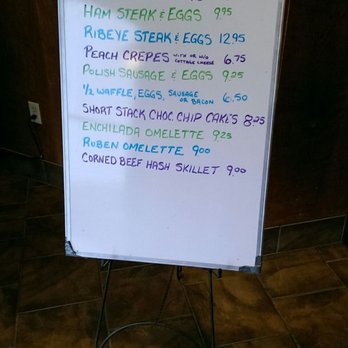 HAM STEAK & EGGS 9.95
RIBEYE STEAK & EGGS 12.95
PEACH CREPES WITH OR W/O COTTAGE CHEESE 6.75
POLISH SAUSAGE & EGGS 9.25
1/2 WAFFLE, EGGS, SAUSAGE OR BACON 6.50
SHORT STACK CHOC. CHIP CAKES 8.95
ENCHILADA OMELETTE 9.25
RUBEN OMELETTE 9.00
CORNED BEEF HASH SKILLET 9.00